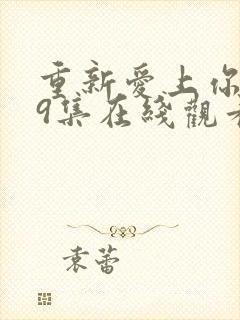 重新爱上你
9集在线观
袁蕾